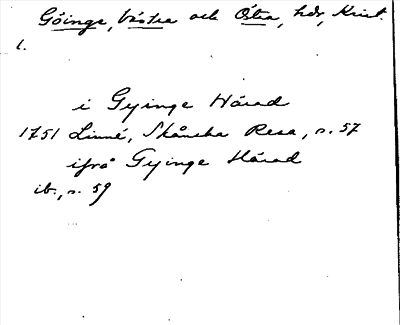 Göinge, Västra och Östra, hdr, Krist.
l.
i Gyinge Härad
1751 Linné, Skåncka Resa, s. 57
ifrå Gyinge Härad
ib., s. 59